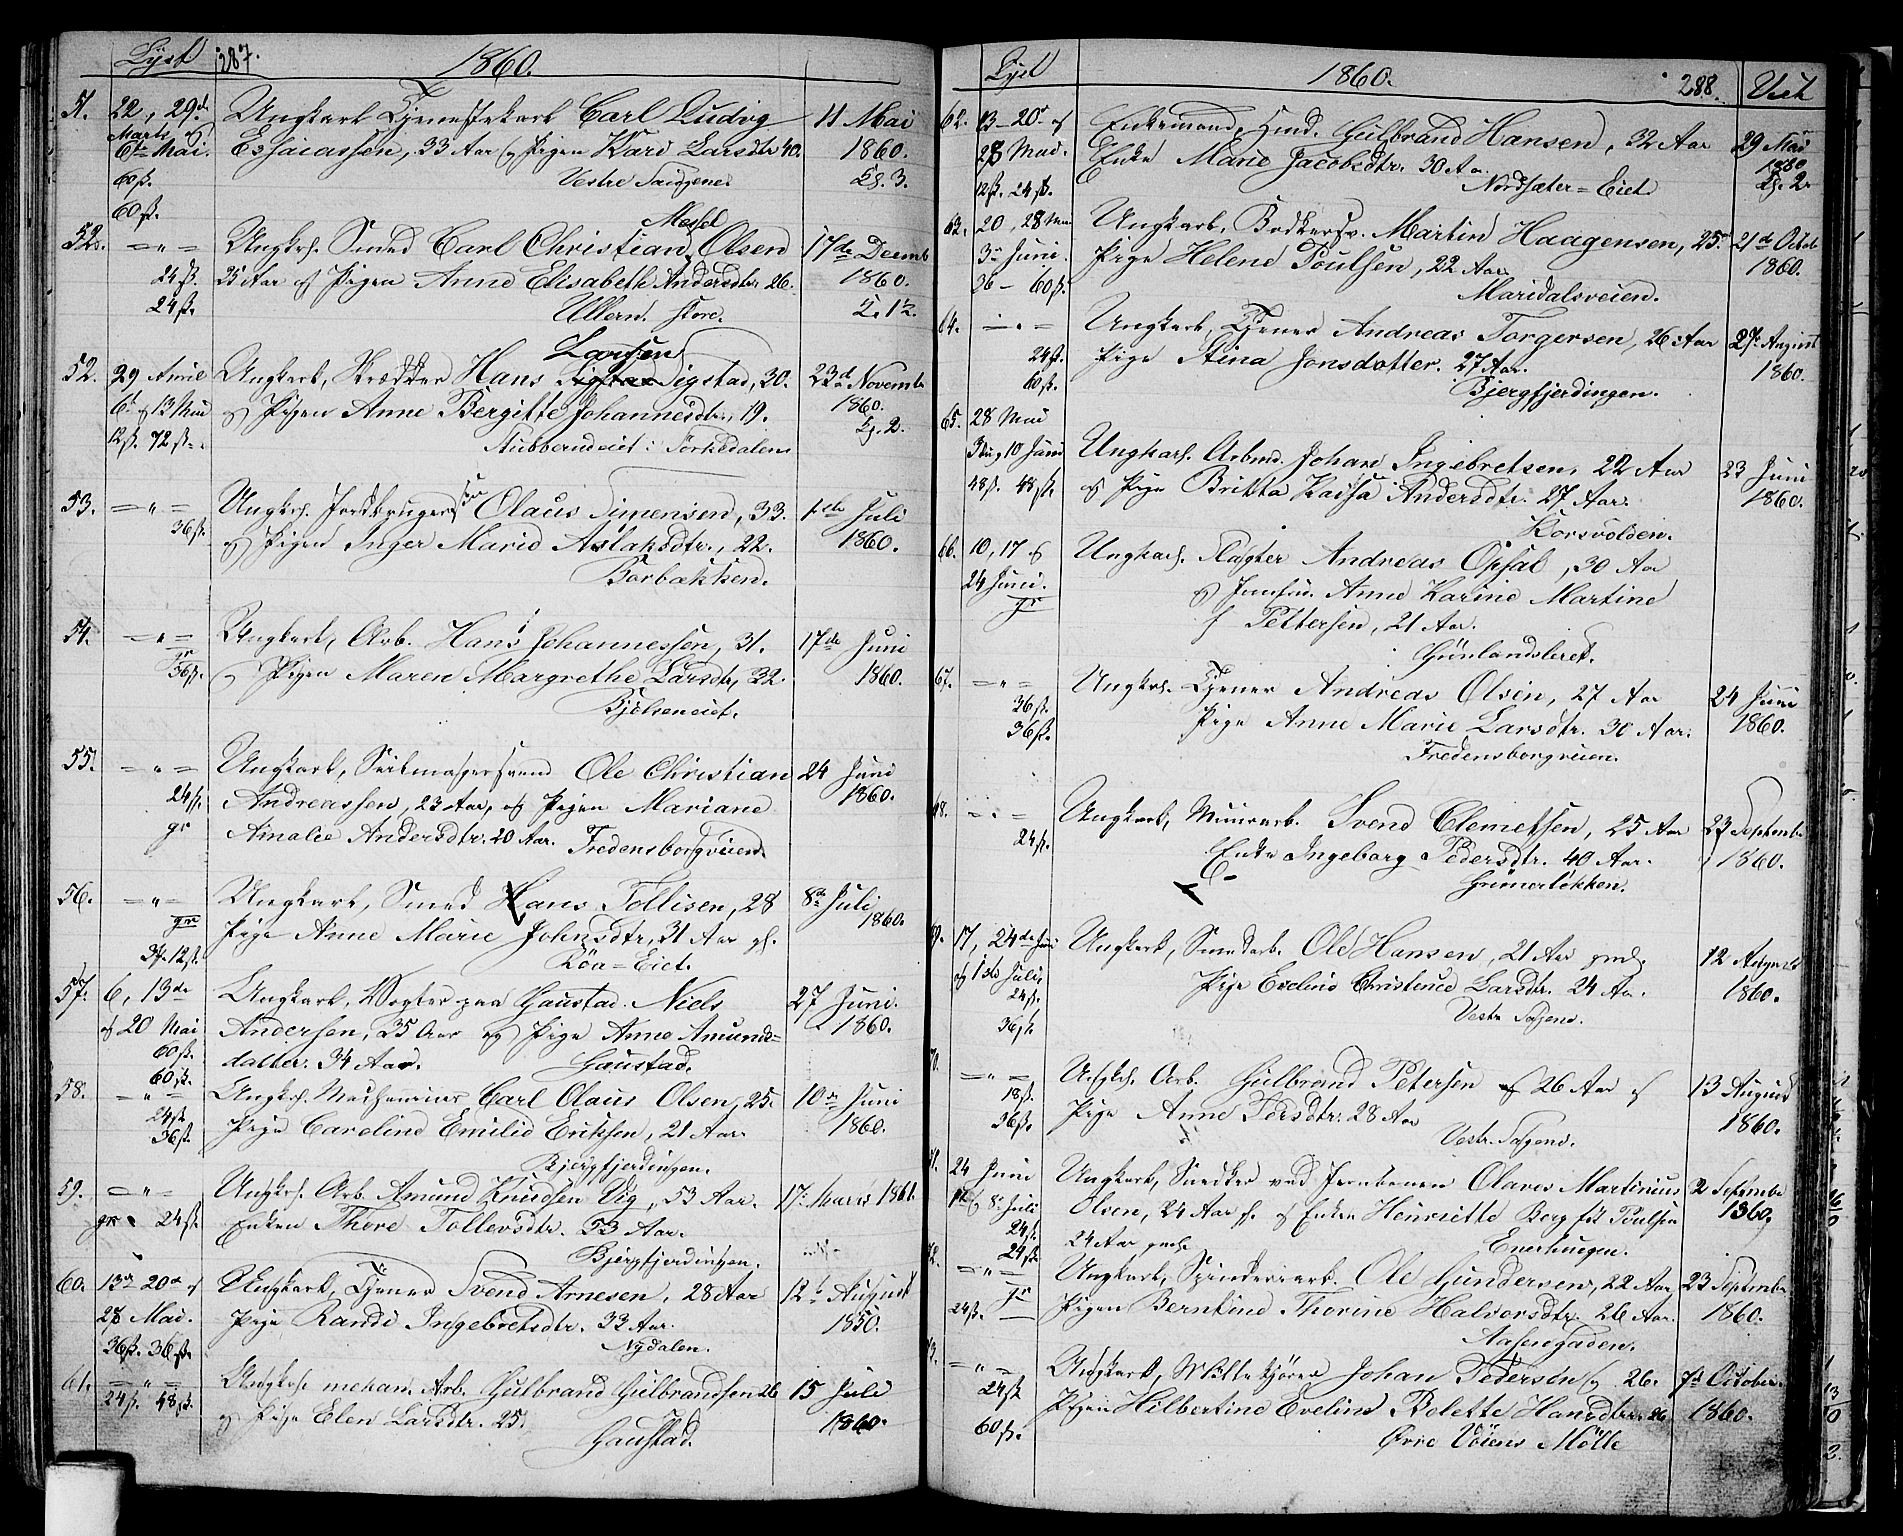 Lyst 287. 1860.
51. 22, 29de Ungkarl Tjenestekarl Carl Ludvig 11 Mai
Marts og
6te Mai. Essaiassen, 33 Aar og Pigen Kari Larsdtr 40. 1860.
60 ß. Vestre Saugene. Lg. 3.
60 ß.
Mosed
52. Ungkrl. Smed Carl Christian Olsen 17de Decemb
24 ß. 25 Aar og Pigen Anne Elisabeth Andersdtr 26. 1860.
24 ß. Ullern store. L. 1½.
Larsen
52. 29 April Ungkarl, Skrædder Hans Sigstad, 30. 23d Novembr
6te og 13 Mai og Pigen Anne Bergitte Johannesdtr, 19. 1860.
12 ß. 72 ß. Stubberudeiet i Sørkedalen Lg. 2.
53. Ungkrl. Jordbruger Olaus Simensen, 33. 1ste Juli
36 ß. og Pigen Inger Marie Aslaksdtr, 22. 1860.
Borbakken.
54. Ungkarl, Arb. Hans Johannessen, 31. 17de Juni
gr
36 ß. og Pigen Maren Margrethe Larsdtr, 32. 1860.
Bjølseneiet.
55. Ungkarl, Seilmagersvend Ole Christian 24 Juni
24 ß. Andreassen, 23 Aar, og Pigen Mariane 1860.
gr Amalie Andersdtr. 20 Aar. Fredensborgveien.
56. Ungkarl, Smed Hans Tollisen, 28 8de Juli
gr Pige Anne Marie Johnsdtr, 31 Aar gl. 1860.
12 ß. Röa-Eiet.
57. 6, 13de Ungkarl, Vogter paa Gaustad Niels 27 Juni.
og 20 Mai Andersen, 35 Aar og Pige Anne Amunds- 1860.
60 ß. datter. 34 Aar. Gaustad.
60 ß.
58. Ungkrl. Carl Olaus Olsen, 25. 10de Juni
24 ß.
36 ß. Pige Caroline Emilie Eriksen, 21 Aar. 1860.
Bjergfjerdingen.
59. Ungkrl. Arb. Amund Knudsen Vig, 53 Aar. 17. Marts 1861.
gr 24 ß. Enken Thore Tollevsdtr. 53 Aar.
Bjergfjerdingen.
60. 13de 20de og Ungkarl, Tjener Svend Arnesen, 28 Aar 12te August
28 Mai. Pige Randi Ingebretsdtr. 33 Aar. 1850.
36 ß. 36 ß. Nydalen.
61. Ungkrl. mekan. Arb. Gulbrand Gulbrandsen 26 15 Juli
24 ß. 48 ß. og Pige Elen Larsdtr. 25. 1860.
Gaustad.
Lyst 1860. 288. Viet
62. 13–20de og Enkemand, Huusd. Gulbrand Hansen, 32 Aar 29 Mai
28 Mai. Enke Marie Jacobsdtr. 30 Aar 1860
12 ß. 24 ß. Nordsæter-Eiet. Lg. 2.
63. 20, 28 Mai Ungkarl, Bødkersv. Martin Haagensen, 25 21de Octob
3die Juni. Pige Helene Poulsen, 22 Aar. 1860.
36 – 60 ß. Maridalsveien.
64. Ungkarl, Tjener Andreas Torgersen, 26 Aar 27. August
24 ß. Pige Stina Jonsdotter. 27 Aar. 1860.
60 ß. Bjergfjerdingen.
65. 28 Mai
3die og 10 Juni Ungkarl. Arbmd. Johan Ingebretsen, 22 Aar 23 Juni
48 ß. 48 ß. og Pige Britta Kaisa Andersdtr. 27 Aar. 1860.
Korsvolden.
66. 10, 17 og Ungkarl. Slagter Andreas Opsal, 30 Aar
24 Juni. og Jomfru. Anne Karine Martine
gr f Pettersen, 21 Aar.
Grünlandsleret.
67. Ungkrl. Tjener Andreas Olsen, 27 Aar 24 Juni
36 ß. Pige Anne Marie Larsdtr. 30 Aar. 1860.
36 ß. Fredensborgveien.
68. Ungkarl, Muurarb. Svend Clemetsen, 25 Aar 23 Septembr
24 ß. Enke Ingeborg Pedersdtr. 40 Aar. 1860.
Grünerløkken.
69. 17, 24de Juni Ungkarl, Smedarb. Ole Hansen, 21 Aar 12 August
og 1ste Juli Pige Eveline Christine Larsdtr. 24 Aar. 1860.
24 ß. Vestr. Sagene.
36 ß.
70. Ungkrl. Arb. Gulbrand Petersen 26 Aar og 13 August
18 ß. Pige Anne Persdtr. 28 Aar 1860.
36 ß. Vestr. Sagene.
71. 24 Juni Ungkarl, Snedker ved Jernbanen Olaves Martinius 2 Septembr
1ste og 8de Juli Olsen, 24 Aar gl. og Enken Henriette Berg fdt Poulsen 1860.
24 ß. 24 Aar Enerhaugen.
24 ß.
72. Ungkarl, Spinderiarb. Ole Gundersen, 22 Aar 23 Septembr
gr
24 ß. Pigen Berntine Thorine Halvorsdtr. 26 Aar. 1860.
Aasengaden.
73. Ungkarl, Møllekjører Johan Pedersen, 26. 7de October
24 ß. Pigen Hilbertine Eveline Belette Hansdtr. 26 1860.
60 ß. Øvre Vöiens Mölle